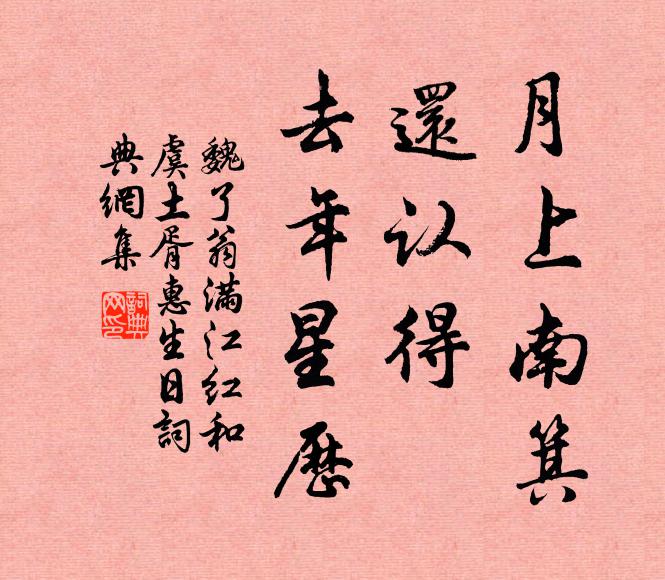 月上南箕
還认得
去年星歷
魏了翁滿江红和
虞土胥惠生日詞
典網集
詞典網印